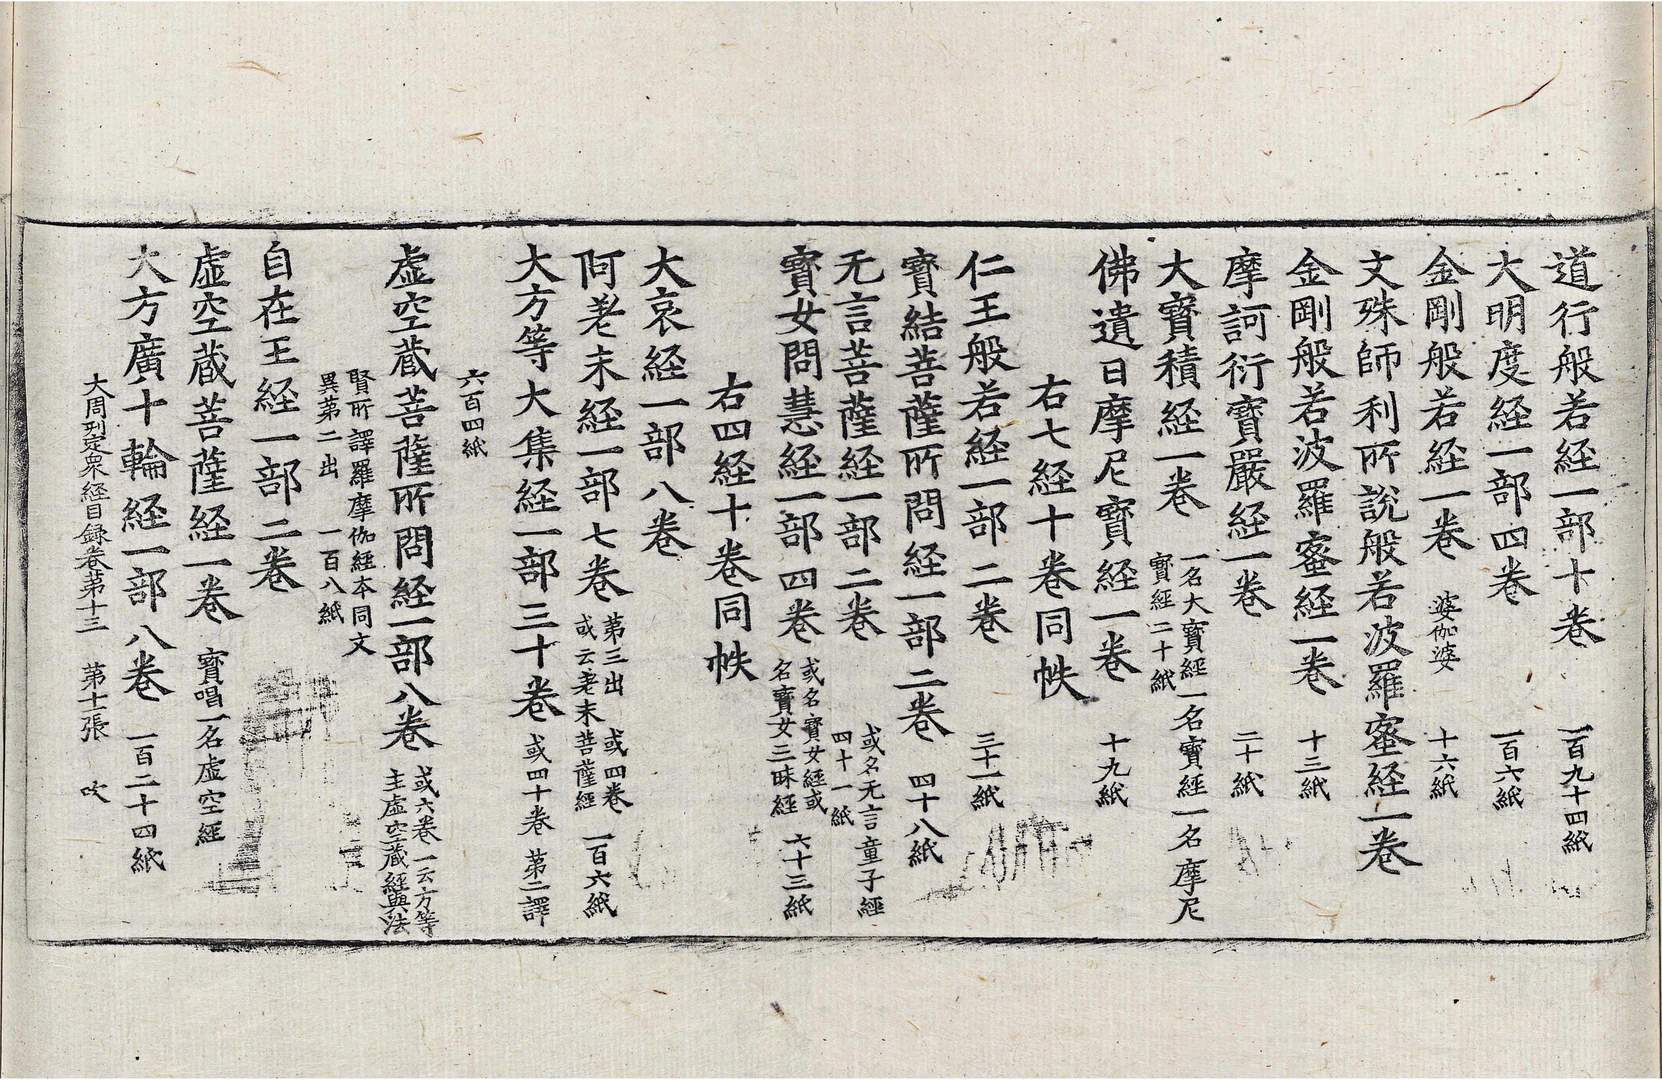 道行般若経一部十卷 一百九十四紙
大明度経一部四卷 一百六紙
金剛般若経一卷 婆伽婆 十六紙
文殊師利所說般若波羅蜜経一卷
金剛般若波羅蜜経一卷 十三紙
摩訶衍寶嚴経一卷 二十紙
大寶積経一卷 一名大寶經一名寶經一名摩尼
寶經二十紙
佛遺日摩尼寶経一卷 十九紙
右七経十卷同帙
仁王般若経一部二卷 三十一紙
寶結菩薩所問経一部二卷 四十八紙
无言菩薩経一部二卷 或名无言童子經
四十一紙
寳女問慧経一部四卷 或名寳女經或
名寶女三昧經 六十三紙
右四経十卷同帙
大哀経一部八卷
阿老末経一部七卷 第三出 或四卷
或云老末菩薩經 一百六紙
大方等大集経一部三十卷 或四十卷 第二譯
六百四紙
虛空蔵菩薩所問経一部八卷 或六卷一云方等
主虛空蔵經與法
賢所譯羅摩伽経本同文
異第二出 一百八紙
自在王経一部二卷
虛空蔵菩薩経一卷 寶唱一名虛空經
大方廣十輪経一部八卷 一百二十四紙
大周刊定衆経目録卷第十三 第十一張 吹